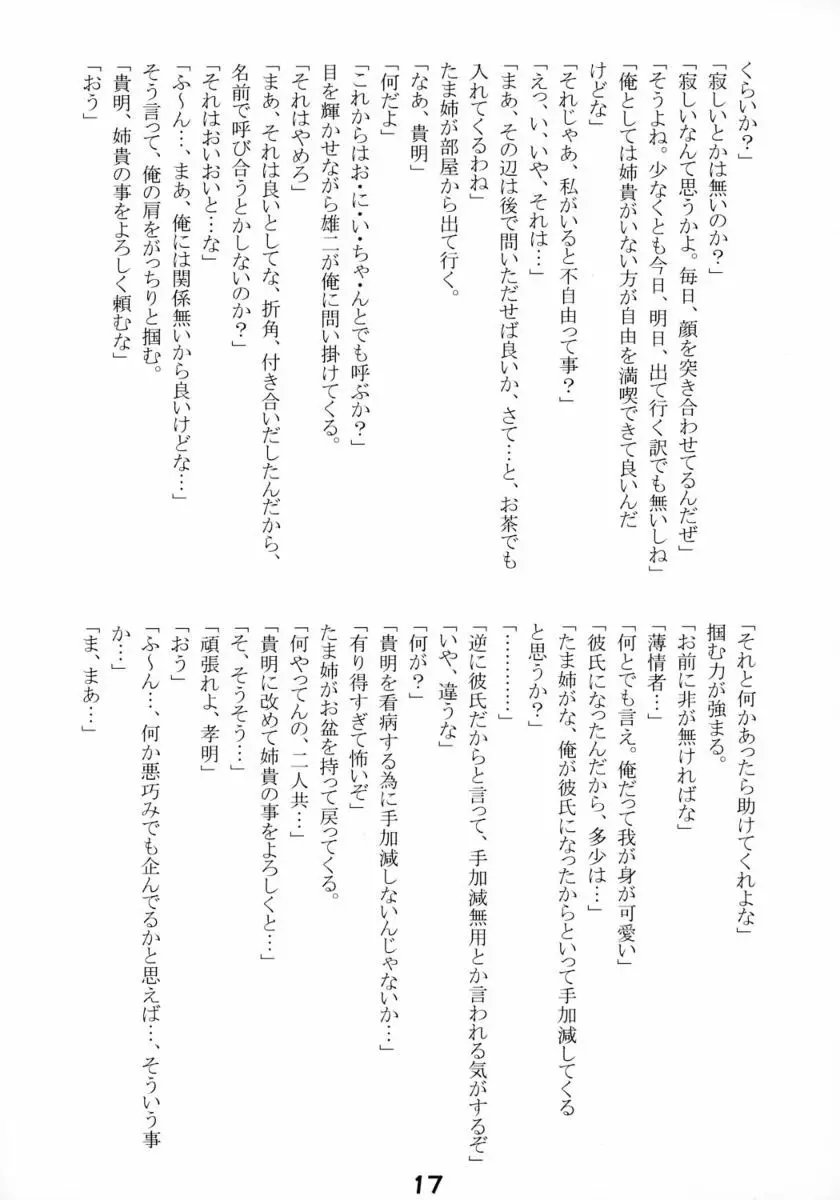 くらいか?」
「寂しいとかは無いのか?」
「寂しいなんて思うかよ。毎日、顔を突き合わせてるんだぜ」
「そうよね。少なくとも今日、明日、出て行く訳でも無いしね」
「俺としては姉貴がいない方が自由を満喫できて良いんだ
けどな」
「それじゃあ、私がいると不自由って事?」
「えっ、い、いや、それは…」
「まあ、その辺は後で問いただせば良いか、さて…と、お茶でも
入れてくるわね」
たま姉が部屋から出て行く。
「なあ、貴明」
「何だよ」
「これからはお・に・い・ちゃ・んとでも呼ぶか?」
目を輝かせながら雄二が俺に問い掛けてくる。
「それはやめろ」
「まあ、それは良いとしてな、折角、付き合いだしたんだから、
名前で呼び合うとかしないのか?」
「それはおいおいと…な」
「ふ〜ん…、まあ、俺には関係無いから良いけどな…」
そう言って、俺の肩をがっちりと掴む。
「貴明、姉貴の事をよろしく頼むな」
「おう」
「それと何かあったら助けてくれよな」
掴む力が強まる。
「お前に非が無ければな」
「薄情者…」
「何とでも言え。俺だって我が身が可愛い」
「彼氏になったんだから、多少は…」
「たま姉がな、俺が彼氏になったからといって手加減してくる
と思うか?」
「…………」
「逆に彼氏だからと言って、手加減無用とか言われる気がするぞ」
「いや、違うな」
「何が?」
「貴明を看病する為に手加減しないんじゃないか…」
「有り得すぎて怖いぞ」
たま姉がお盆を持って戻ってくる。
「何やってんの、二人共…」
「貴明に改めて姉貴の事をよろしくと…」
「そ、そうそう…」
「頑張れよ、孝明」
「おう」
「ふ〜ん…、何か悪巧みでも企んでるかと思えば…、そういう事
か…」
「ま、まあ…」
17